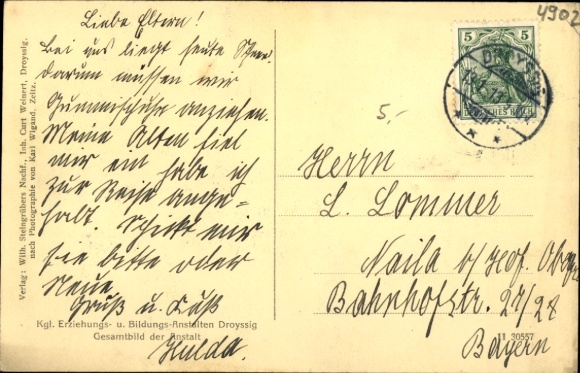 4902
Liebe Eltern!
Bei uns liegt heute Schnee
darum müssen wir
Gummischuhe anziehen.
Meine Alten fiel
mir ein habe ich
zur Reise ange-
halt. Schickt mir
sie bitte oder
Neue
Gruß u. Kuß
Hulda.
Verlag: Wilh. Steingrübers Nachf., Inh. Curt Weinert, Droyssig.
nach Photographie von Karl Wigand, Zeitz.
Kgl. Erziehungs- u. Bildungs-Anstalten Droyssig
Gesamtbild der Anstalt
5 5
DEUTSCHES REICH
5,-
Herrn
L. Lommer
Naila b/Hof.
Bahnhofstr. 27/28
Bayern
11 30557